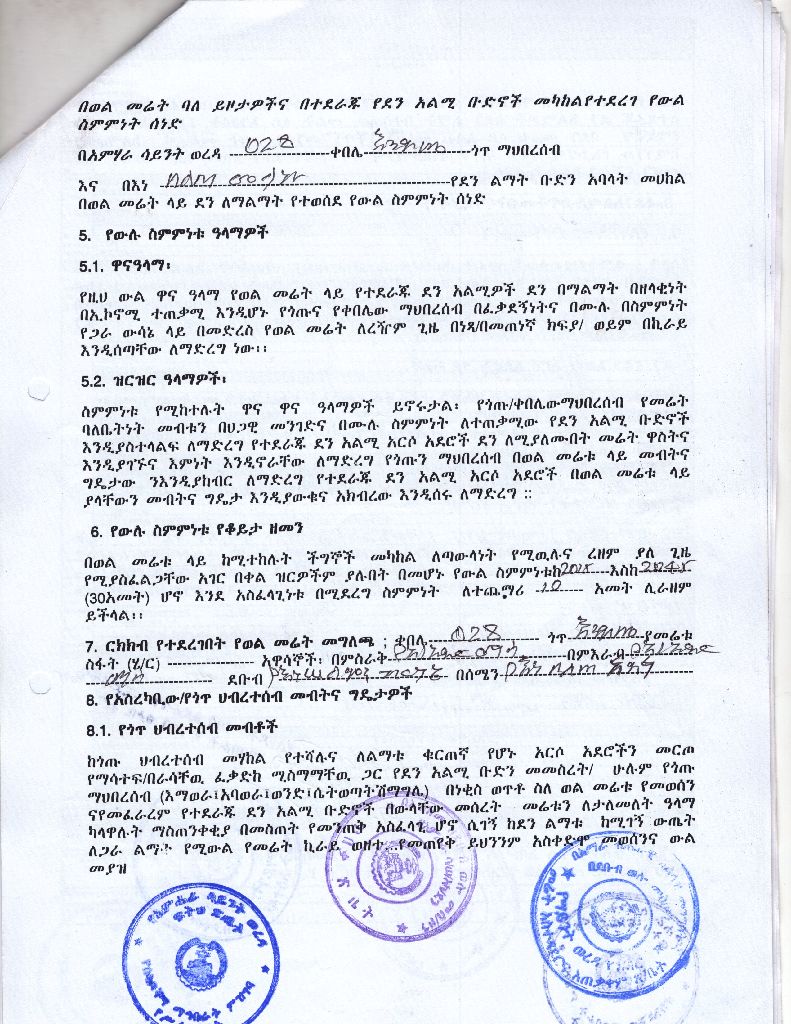 በወል መሬት ባለ ይዞታዎችና በተደራጁ የደን አልሚ ቡድኖች መካከልየተደረገ የውል
ስምምነት ሰነድ
በአምሃራ ሳይንት ወረዳ 028 ቀበሌ ጎጥ ማህበረሰብ
እና በእነ የደን ልማት ቡድን አባላት መሀከል
በወል መሬት ላይ ደን ለማልማት የተወሰደ የውል ስምምነት ሰነድ
5. የውሉ ስምምነቱ ዓላማዎች
5.1. ዋናዓላማ፡
የዚህ ውል ዋና ዓላማ የወል መሬት ላይ የተደራጁ ደን አልሚዎች ደን በማልማት በዘላቂነት
በኢኮኖሚ ተጠቃሚ እንዲሆኑ የጎጡና የቀበሌው ማህበረሰብ በፈቃደኝነትና በሙሉ በስምምነት
የጋራ ውሳኔ ላይ በመድረስ የወል መሬት ለረዥም ጊዜ በነጻ/በመጠነኛ ክፍያ/ ወይም በኪራይ
እንዲሰጣቸው ለማድረግ ነው፡፡
5.2. ዝርዝር ዓላማዎች፡
ስምምነቱ የሚከተሉት ዋና ዋና ዓላማዎች ይኖሩታል፡ የጎጡ/ቀበሌውማህበረሰብ የመሬት
ባለቤትነት መብቱን በህጋዊ መንገድና በሙሉ ስምምነት ለተጠቃሚው የደን አልሚ ቡድኖች
እንዲያስተላልፍ ለማድረግ የተደራጁ ደን አልሚ አርሶ አደሮች ደን ለሚያለሙበት መሬት ዋስትና
እንዲያገኙና እምነት እንዲኖራቸው ለማድረግ የጎጡን ማህበረሰብ በወል መሬቱ ላይ መብትና
ግዴታው ንእንዲያከብር ለማድረግ የተደራጁ ደን አልሚ አርሶ አደሮች በወል መሬቱ ላይ
ያላቸውን መብትና ግዴታ እንዲያውቁና አክብረው እንዲሰሩ ለማድረግ ::
6. የውሉ ስምምነቱ የቆይታ ዘመን
በወል መሬቱ ላይ ከሚተከሉት ችግኞች መካከል ለጣውላነት የሚዉሉና ረዘም ያለ ጊዜ
የሚያስፈልጋቸው አገር በቀል ዝርዎችም ያሉበት በመሆኑ የውል ስምምነቱከ2015 እስከ 2045
(30አመት) ሆኖ እንደ አስፈላጊነቱ በሚደረግ ስምምነት ለተጨማሪ 10 አመት ሊራዘም
ይችላል፡፡
7. ርክክብ የተደረገበት የወል መሬት መግለጫ ; ቀበሌ 028 ጎጥ የመሬቱ
ስፋት (ሄ/ር) አዋሳኞች፡ በምስራቅ በምእራብ
ደቡብ በሰሜን
8. የአስረካቢው/የጎጥ ህብረተሰብ መብትና ግዴታዎች
8.1. የጎጥ ህብረተሰብ መብቶች
ከጎጡ ህብረተሰብ መሃከል የተሻሉና ለልማቱ ቁርጠኛ የሆኑ አርሶ አደሮችን መርጦ
የማሳተፍ/በራሳቸዉ ፈቃድከ ሚስማማቸዉ ጋር የደን አልሚ ቡድን መመስረት/ ሁሉም የጎጡ
ማህበረሰብ (እማወራ፤አባወራ፤ወንድ፤ሴትወጣት፤ሽማግሌ) በነቂስ ወጥቶ ስለ ወል መሬቱ የመወሰን
ናየመፈራረም የተደራጁ ደን አልሚ ቡድኖች በውላቸው መሰረት መሬቱን ለታለመለት ዓላማ
ካላዋሉት ማስጠንቀቂያ በመስጠት የመንጠቅ አስፈላጊ ሆኖ ሲገኝ ከደን ልማቱ ከሚገኝ ውጤት
ለጋራ ልማት የሚውል የመሬት ኪራይ ወዘተ...የመጠየቅ ይህንንም አስቀድሞ መወሰንና ውል
መያዝ